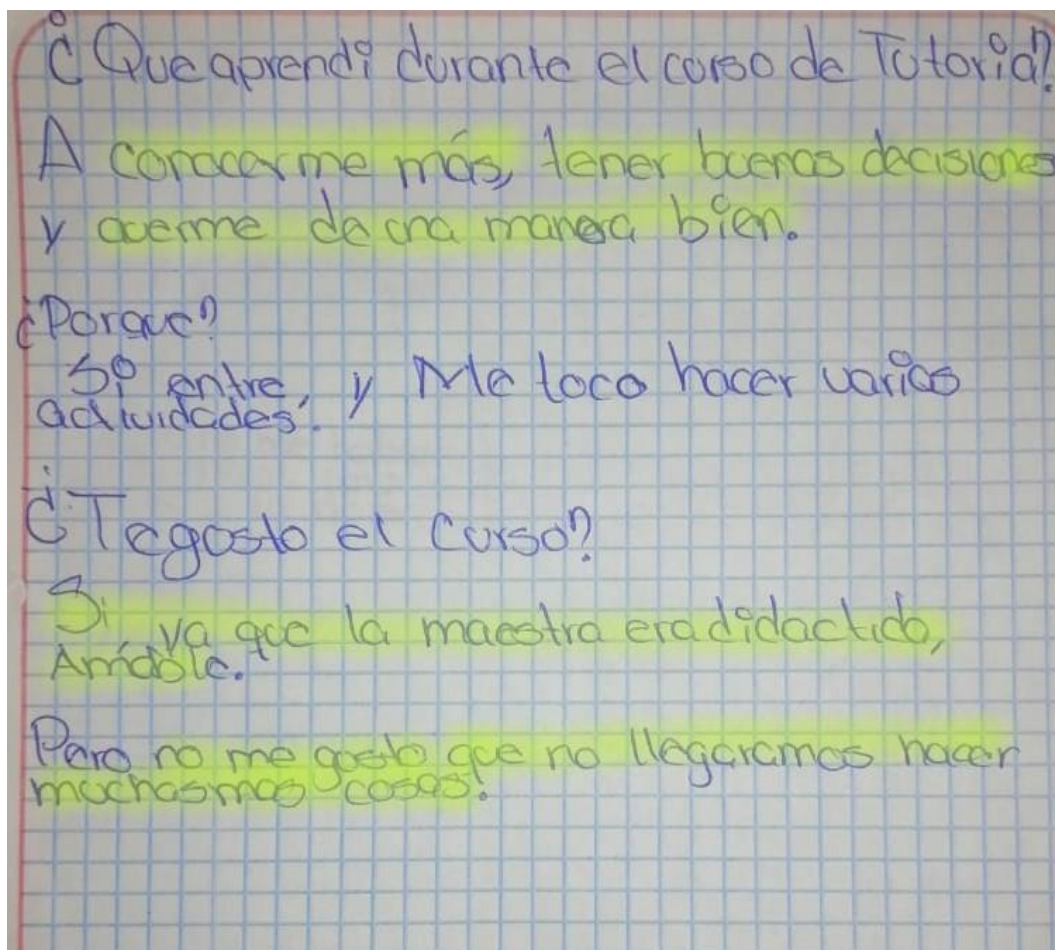 ¿Que aprendi durante el curso de Tutoria?
A conocerme más, tener buenas decisiones
y acerme de una manera bien.
¿Porque?
Si entre, y Me toco hacer varias
actividades.
¿Te gosto el curso?
Si, ya que la maestra era didactido,
Amable.
Pero no me gosto que no llegaramos hacer
muchas mas cosas.